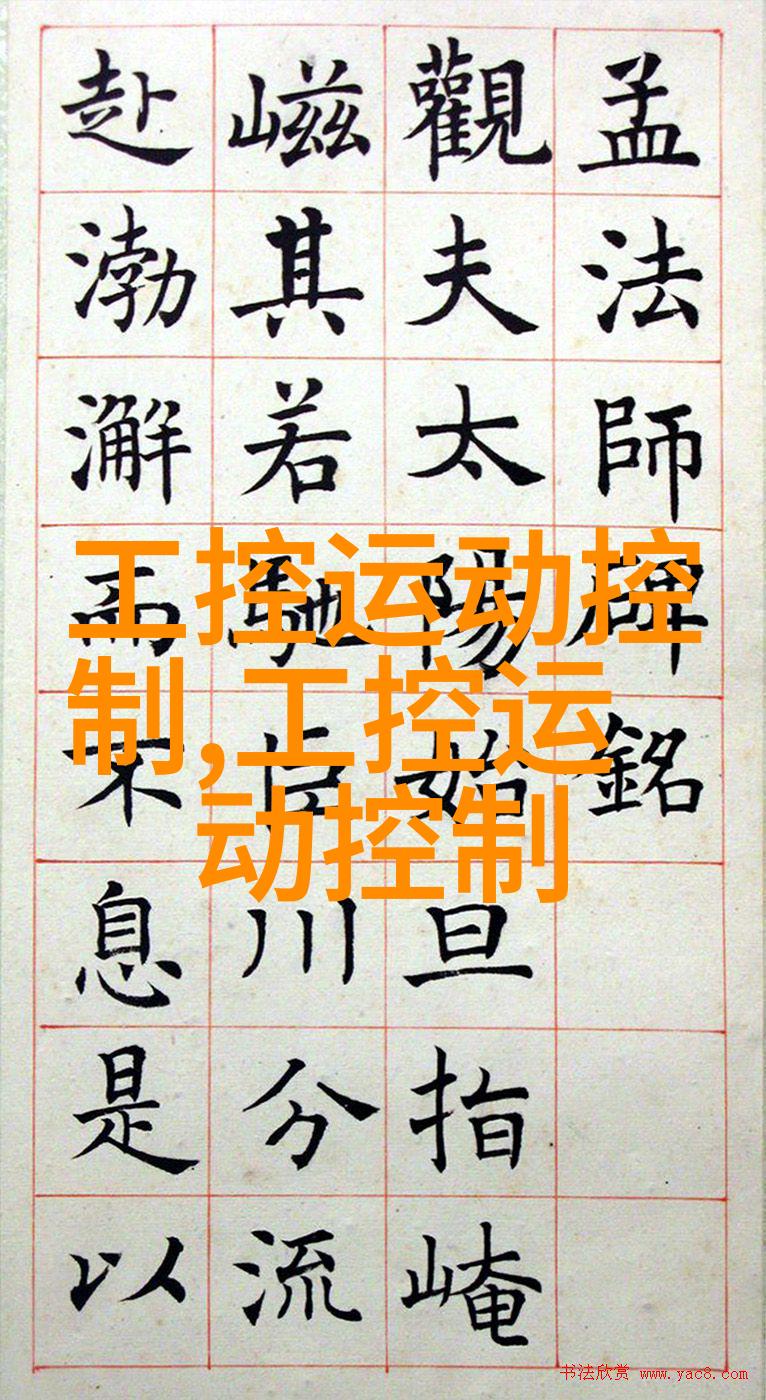 孟法師碑銘
觀夫太陽始旦指崦
嵫其若馳巨川分流
赴渤澥而不息是以
工控运动控
制,工控运
动控制
书法欣赏 www.yac8.com